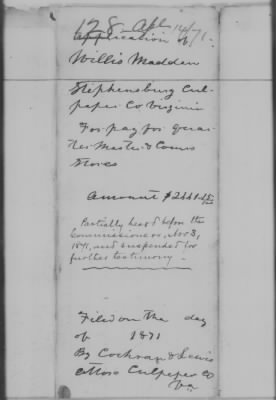 128 Apl 14/71.
Application of
Willis Madden
Stephensburg Cul-
peper Co Virginia
For pay for quar-
ter Master & Comss
Stores
Amount $2441.
Partially heard before the
Commissioners, Nov 3,
1871, and suspended for
further testimony.
Filed on the day
of 1871
By Cochran & Lewis
Attos Culpeper Co
Va